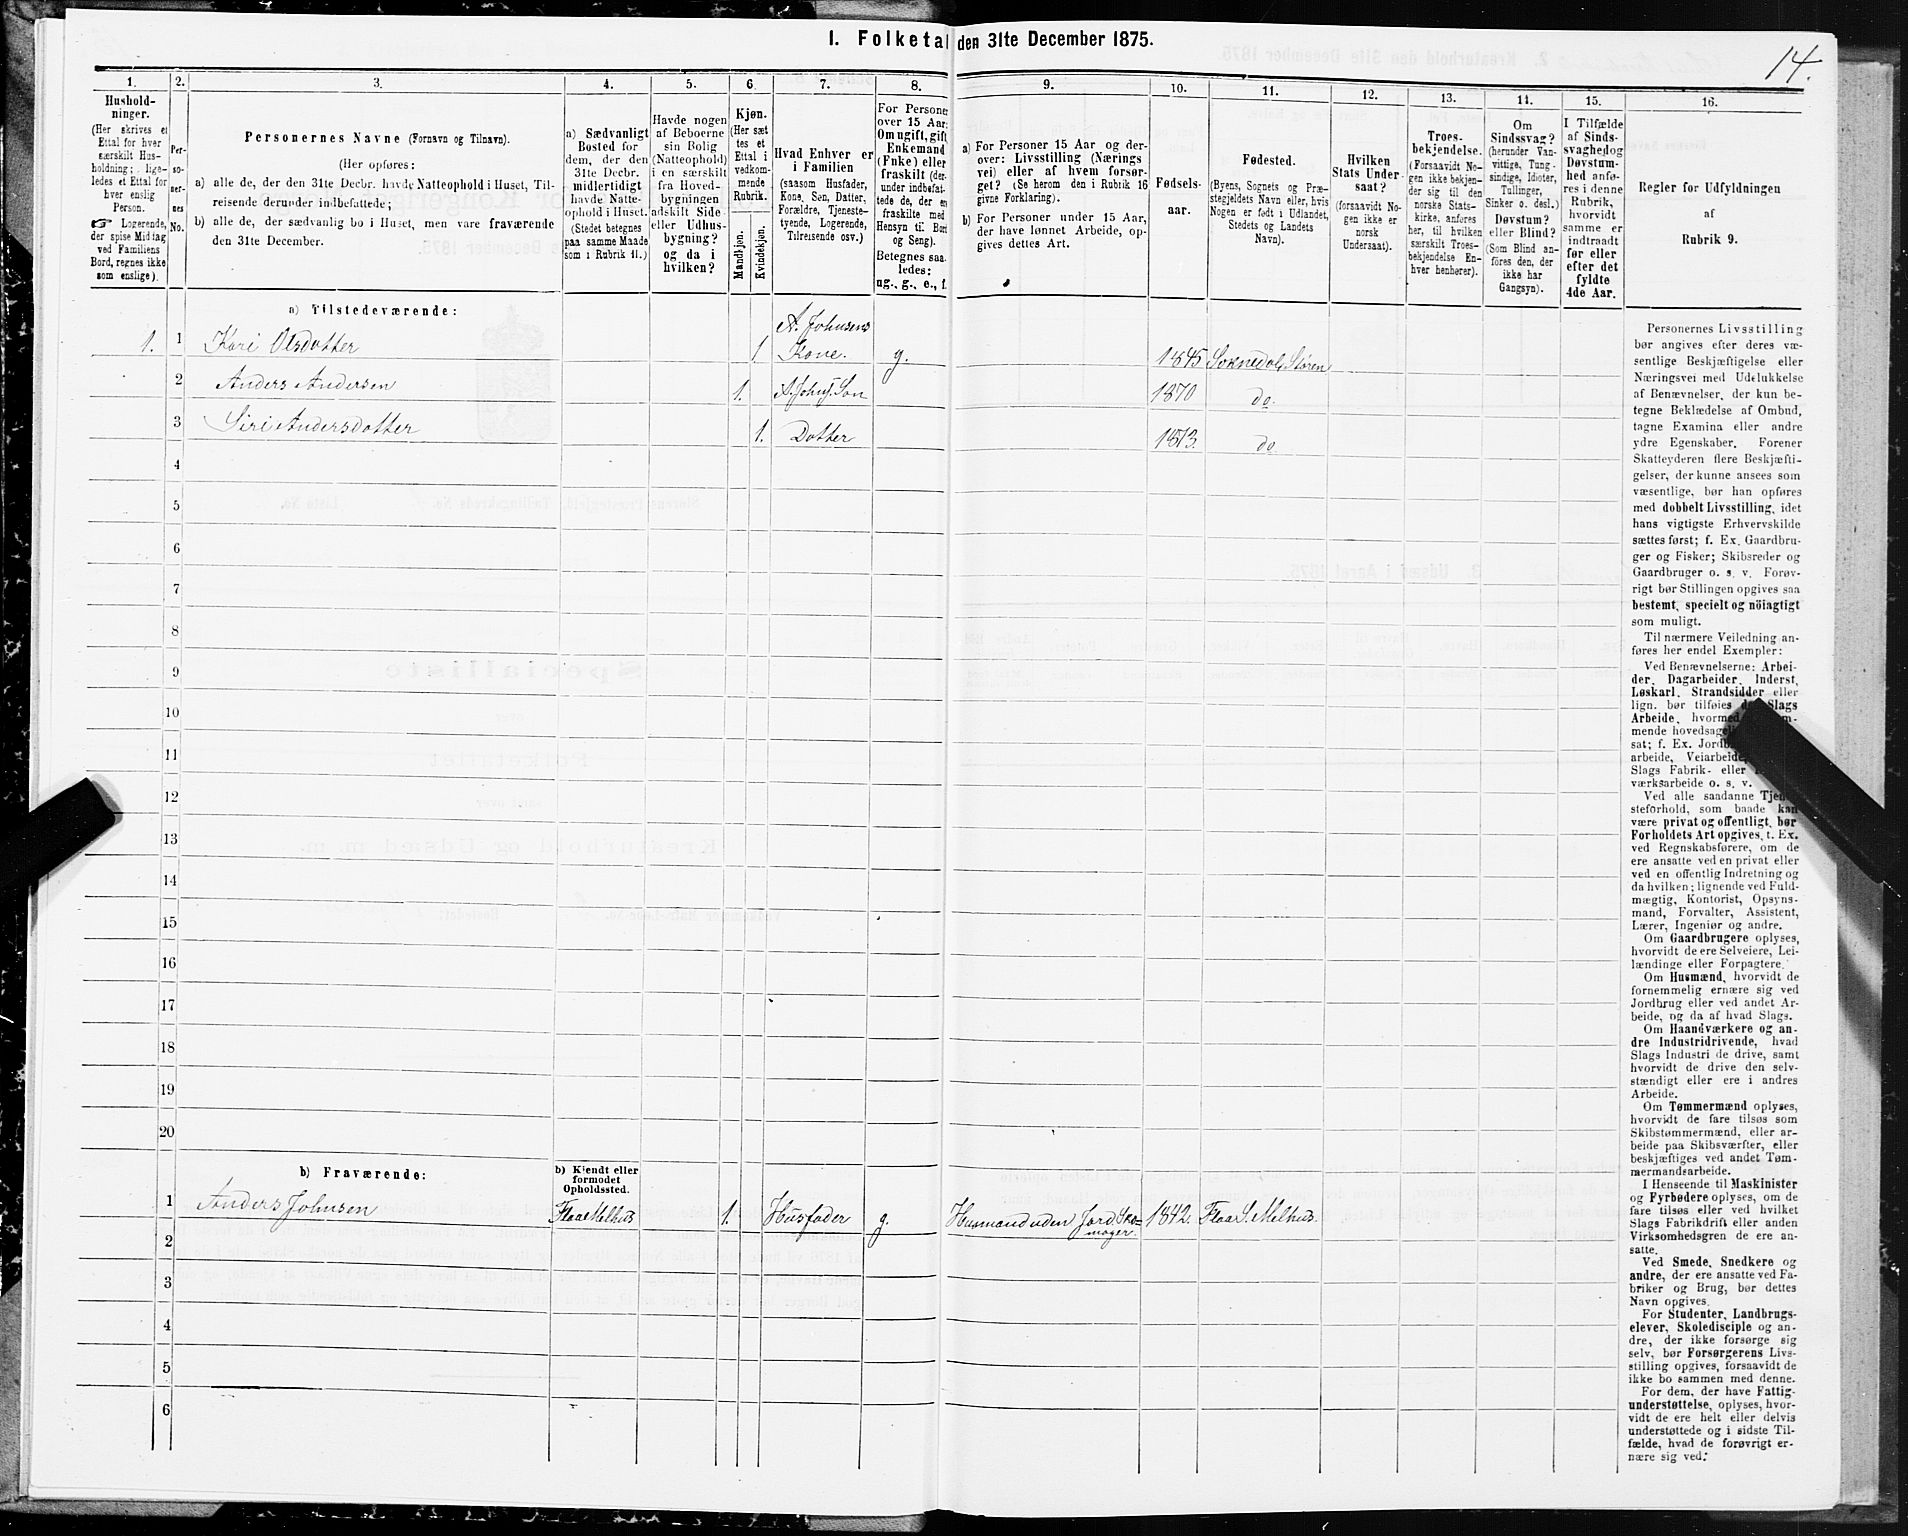 I. Folketal den 31te December 1875.
14.
1.
2.
3.
4.
5.
6.
7.
8.
9.
10.
11.
12.
13.
14.
15.
16.
Hushold-
ninger.
(Her skrives et
Ettal for hver
særskilt Hus-
holdning; lige-
ledes et Ettal for
hver enslig
Person.
☞ Logerende,
der spise Middag
ved Familiens
Bord, regnes ikke
som enslige).
Per-
so-
ner-
nes
No.
Personernes Navne (Fornavn og Tilnavn).
(Her opføres:
a) alle de, der den 31te Decbr. havde Natteophold i Huset, Til-
reisende derunder indbefattede;
b) alle de, der sædvanlig bo i Huset, men vare fraværende
den 31te December.
a) Sædvanligt
Bosted for
dem, der den
31te Decbr.
midlertidigt
havde Natte-
ophold i Huset.
(Stedet betegnes
paa samme Maade
som i Rubrik 11.)
Havde nogen
af Beboerne
sin Bolig
(Natteophold)
i en særskilt
fra Hoved-
bygningen
adskilt Side
eller Udhus-
bygning?
og da i
hvilken?
Kjøn.
(Her sæt
tes et
Ettal i
vedkom-
mende
Rubrik.
Mandkjøn.
Kvindekjøn.
Hvad Enhver er
i Familien
(saasom Husfader,
Kone, Søn, Datter,
Forældre, Tjeneste-
tyende, Logerende,
Tilreisende osv.)
For Personer
over 15 Aar:
Om ugift, gift,
Enkemand
(Enke) eller
fraskilt (der-
under indbefat-
tede de, der ere
fraskilte med
Hensyn til Bord
og Seng).
Betegnes saa-
ledes:
ug., g., e., f.
a) For Personer 15 Aar og der-
over: Livsstilling (Nærings
vei) eller af hvem forsør-
get? (Se herom den i Rubrik 16
givne Forklaring).
b) For Personer under 15 Aar,
der have lønnet Arbeide, op-
gives dettes Art.
Fødsels-
aar.
Fødested.
(Byens, Sognets og Præ-
stegjeldets Navn eller, hvis
Nogen er født i Udlandet,
Stedets og Landets
Navn).
Hvilken
Stats Under-
saat?
(forsaavidt No-
gen ikke er
norsk
Undersaat).
Troes-
bekjendelse.
(Forsaavidt No-
gen ikke bekjen-
der sig til den
norske Stats-
kirke, anføres
her, til hvilken
særskilt Troes-
bekjendelse En-
hver henhører).
Om
Sindssvag?
(herunder Van-
vittige, Tung-
sindige, Idioter,
Tullinger,
Sinker o. desl.)
Døvstum?
eller Blind?
(Som Blind an-
føres den, der
ikke har
Gangsyn).
I Tilfælde
af Sinds-
svaghed og
Døvstum-
hed anfø-
res i denne
Rubrik,
hvorvidt
samme er
indtraadt
før eller
efter det
fyldte
4de Aar.
Regler for Udfyldningen
af
Rubrik 9.
a) Tilstedeværende:
1. 1 Kari Olsdatter 1. A. Johnsens Kone. g. 1845 Soknedal, Støren
2 Anders Andersen 1. A. Johns. Søn 1870 do.
3 Siri Andersdatter 1. Datter 1873. do
4
5
6
7
8
9
10
11
12
13
14
15
16
17
18
19
20
b) Fraværende:
b) Kjendt eller
formodet
Opholdssted.
1 Anders Johnsen Flaa Melhus 1. Husfader g. Husmand uden Jord, Sko-
mager. 1842. Flaa S. Melhus.
2
3
4
5
6
Personernes Livsstilling
bør angives efter deres væ-
sentlige Beskjæftigelse eller
Næringsvei med Udelukkelse
af Benævnelser, der kun be-
tegne Beklædelse af Ombud,
tagne Examina eller andre
ydre Egenskaber. Forener
Skatteyderen flere Beskjæfti-
gelser, der kunne ansees som
væsentlige, bør han opføres
med dobbelt Livsstilling, idet
hans vigtigste Erhvervskilde
sættes først; f. Ex. Gaardbru-
ger og Fisker; Skibsreder og
Gaardbruger o. s. v. Forøv-
rigt bør Stillingen opgives saa
bestemt, specielt og nöiagtigt
som muligt.
Til nærmere Veiledning an-
føres her endel Exempler:
Ved Benævnelserne: Arbei-
der, Dagarbeider, Inderst,
Løskarl, Strandsidder eller
lign. bør tilføies Slags
Arbeide, hvormed
mende hovedsagel
sat; f. Ex. Jord
arbeide, Veiarbeide,
Slags Fabrik- eller
værksarbeide o. s. v.
Ved alle saadanne Tjene-
steforhold, som baade kan
være privat og offentligt, bør
Forholdets Art opgives, t. Ex.
ved Regnskabsførere, om de
ere ansatte ved en privat eller
ved en offentlig Indretning og
da hvilken; lignende ved Fuld-
mægtig, Kontorist, Opsyns-
mand, Forvalter, Assistent,
Lærer, Ingeniør og andre.
Om Gaardbrugere oplyses,
hvorvidt de ere Selveiere, Lei-
lændinge eller Forpagtere.
Om Husmænd, hvorvidt de
fornemmelig ernære sig ved
Jordbrug eller ved andet Ar-
beide, og da af hvad Slags.
Om Haandværkere og an-
dre Industridrivende, hvad
Slags Industri de drive, samt
hvorvidt de drive den selv-
stændigt eller ere i andres
Arbeide.
Om Tømmermænd oplyses,
hvorvidt de fare tilsøs som
Skibstømmermænd, eller ar-
beide paa Skibsværfter, eller
beskjæftiges ved andet Tøm-
mermandsarbeide.
I Henseende til Maskinister
og Fyrbødere oplyses, om de
fare tilsøs eller ved hvilket
Slags Fabrikdrift eller anden
Virksomhedsgren de ere an-
satte.
Ved Smede, Snedkere og
andre, der ere ansatte ved Fa-
briker og Brug, bør dettes
Navn opgives.
For Studenter, Landbrugs-
elever, Skoledisciple og an-
dre, der ikke forsørge sig
selv, bør Forsørgerens Livs-
stilling opgives, forsaavidt de
ikke bo sammen med denne.
For dem, der have Fattig-
understøttelse, oplyses, hvor-
vidt de ere helt eller delvis
understøttede og i sidste Til-
fælde, hvad de forøvrigt er-
nære sig ved.